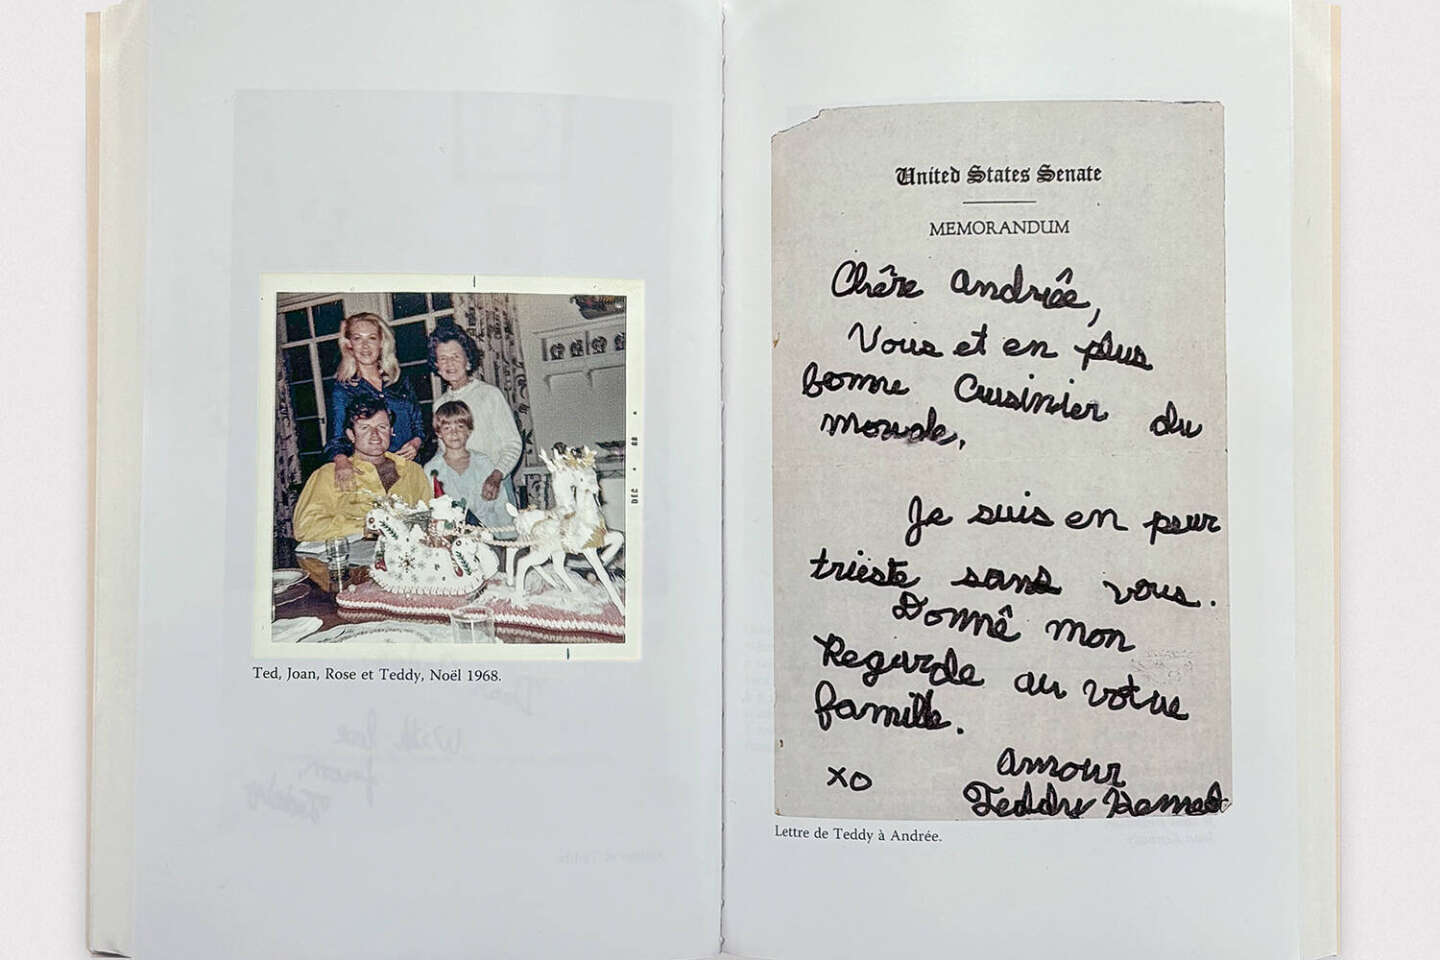 DEC • 68
Ted, Joan, Rose et Teddy, Noël 1968.
With love
from,
Teddy
United States Senate
MEMORANDUM
Chêre Andrêe,
Vous et en plus
bonne Cuisinier du
monde.
Je suis en peur
trieste sans vous.
Donnê mon
Regarde au votre
famille.
Amour
xo
Teddy Kennedy
Lettre de Teddy à Andrée.